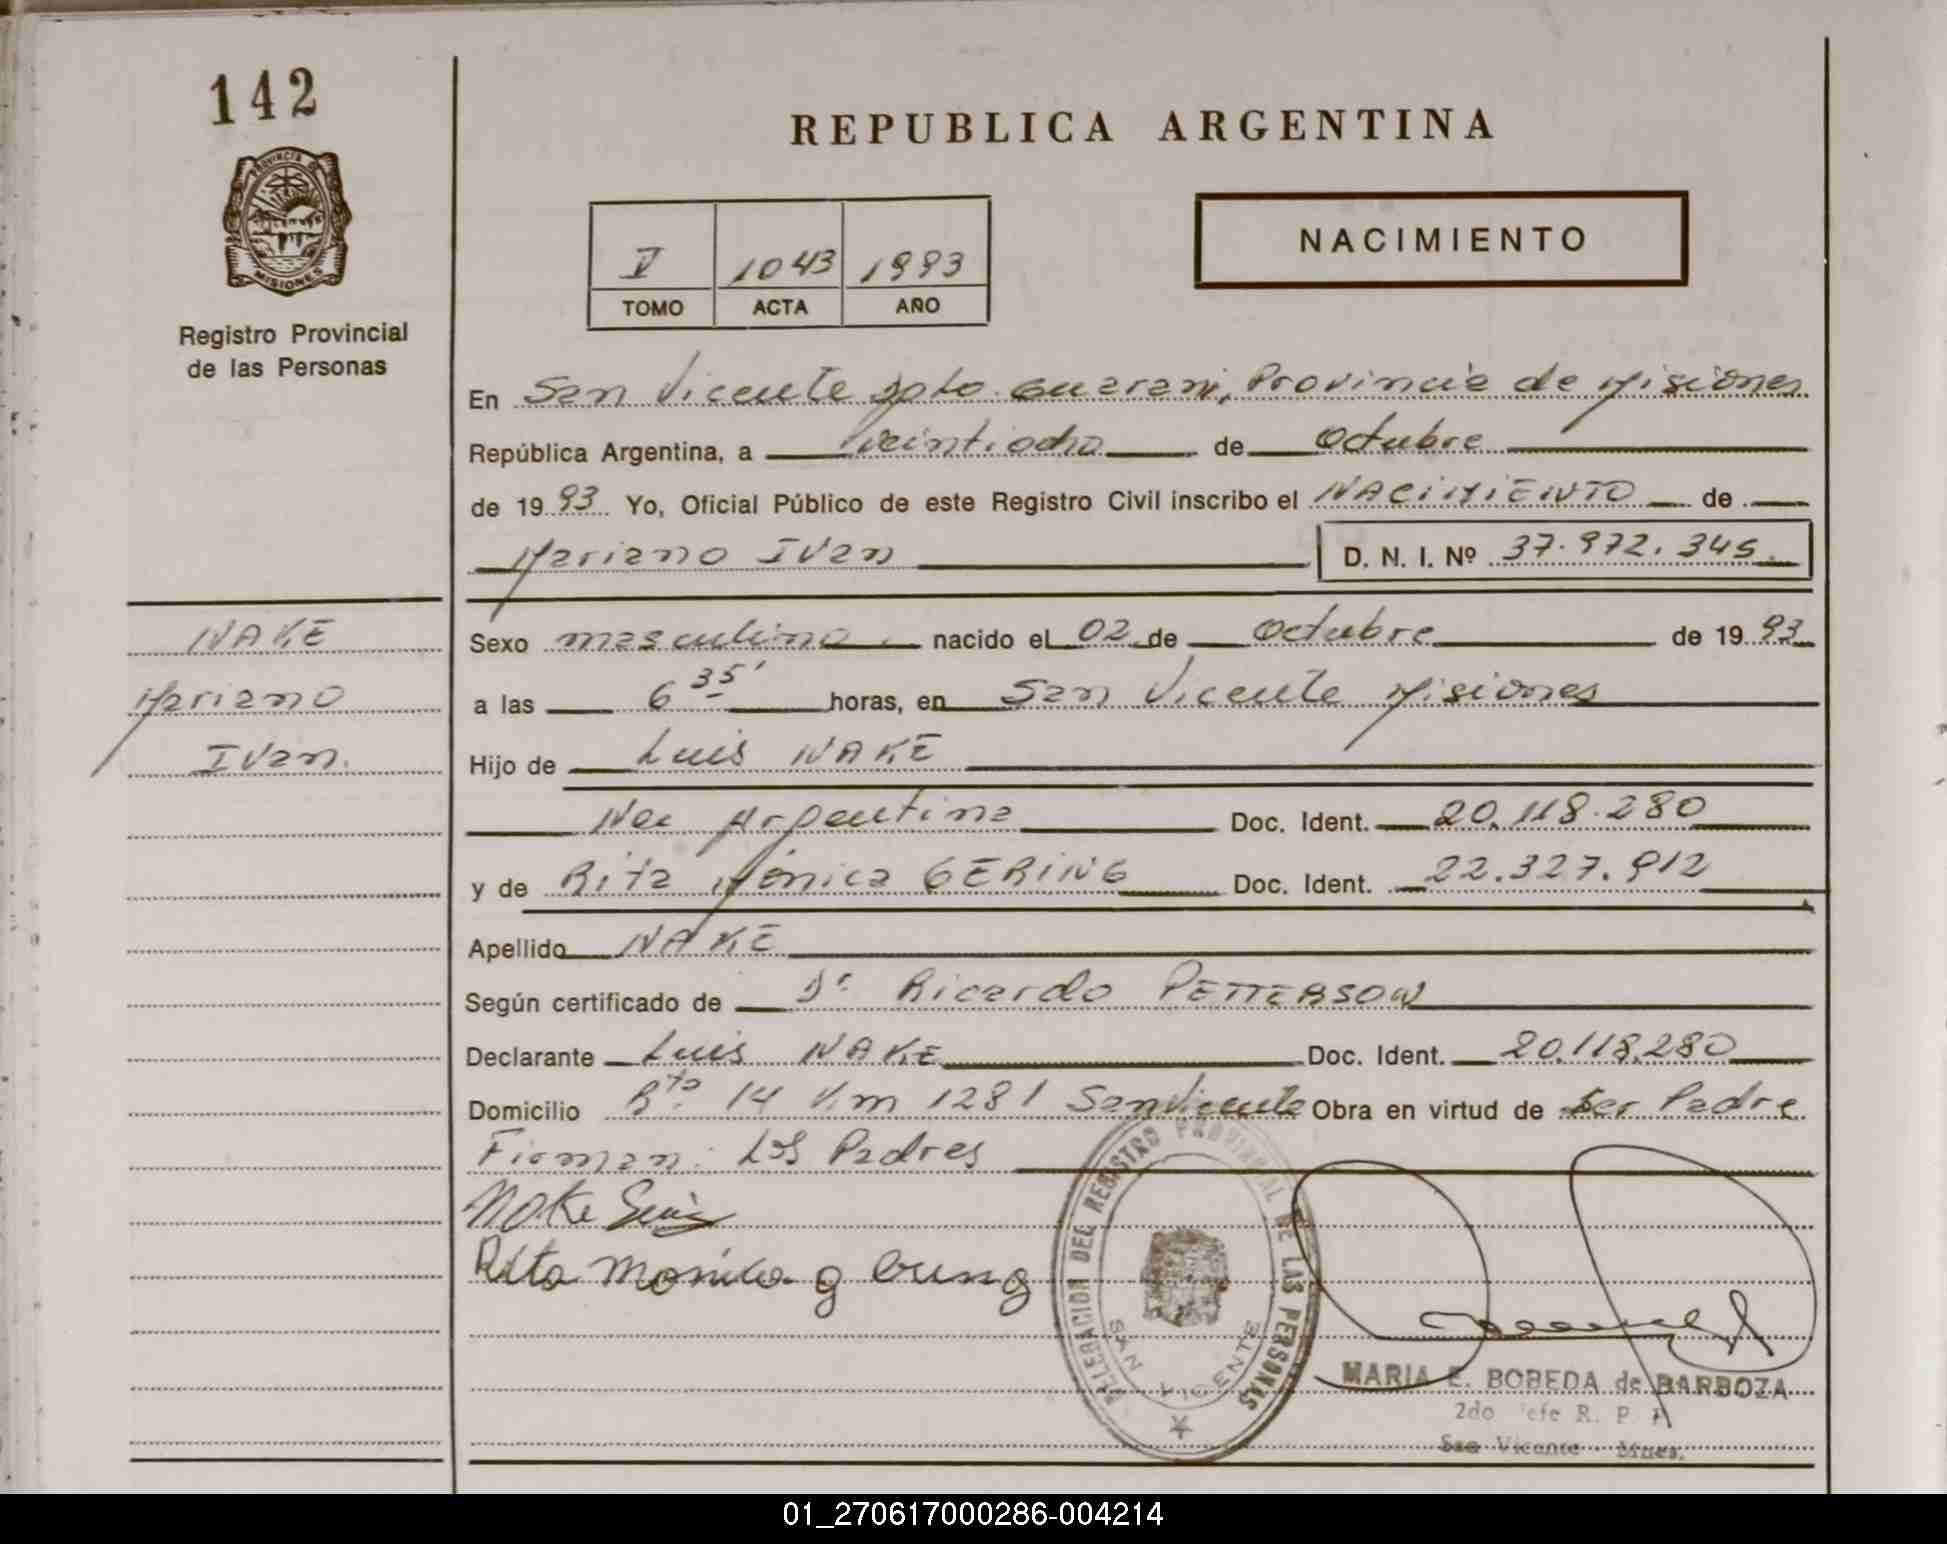 142
REPUBLICA ARGENTINA
PROVINCIA DE
MISIONES
Registro Provincial
de las Personas
V 1043 1993
TOMO ACTA AÑO
NACIMIENTO
En San Vicente Dpto. Guarani, Provincia de Misiones
República Argentina, a veintiocho de Octubre
de 1993 Yo, Oficial Público de este Registro Civil inscribo el NACIMIENTO de
Mariano Ivan D. N. I. Nº 37.972.345.
NAKE
Mariano
Ivan.
Sexo masculino nacido el 02 de Octubre de 1993
a las 6 35' horas, en San Vicente Misiones
Hijo de Luis NAKE
Nac Argentina Doc. Ident. 20.118.280
y de Rita Mónica GERING Doc. Ident. 22.327.912
Apellido NAKE
Según certificado de Dr. Ricardo PETTERSON
Declarante Luis NAKE Doc. Ident. 20.118.280
Domicilio Rta. 14 Km 1281 San Vicente Obra en virtud de ser Padre
Firman: Los Padres
Nake Luis
Rita Monica g ering
DELEGACION DEL REGISTRO PROVINCIAL DE LAS PERSONAS
SAN VICENTE
MARIA E. BOBEDA de BARBOZA
2do Jefe R. P. P.
San Vicente - Mnes.
01_270617000286-004214